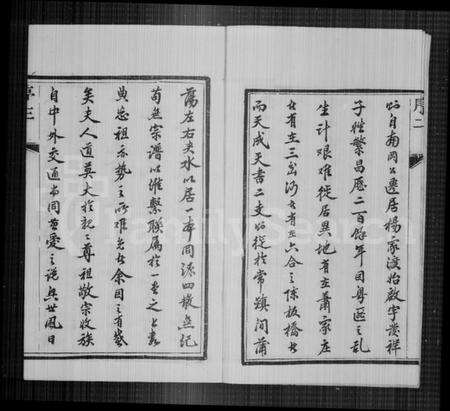 序二
始自南岡公遷居楊家渡始啟宇發祥
子姓繁昌歷二百餘年因粵匪之亂
生計艱難徙居異地有在蕭家庄
者有在三岔河者有在六合之陳板橋者
而天成天壽二支始從於常鎮間蒲
蕩左右夾水以居一本同源四散無紀
苟無宗譜以維繫聯屬於一書之上褱
典忘祖亦勢之所難免者余因之有感
矣夫人道莫大於親親尊祖敬宗收族
自中外交通尚同菩愛之說與世風日
序三
FamilySearch